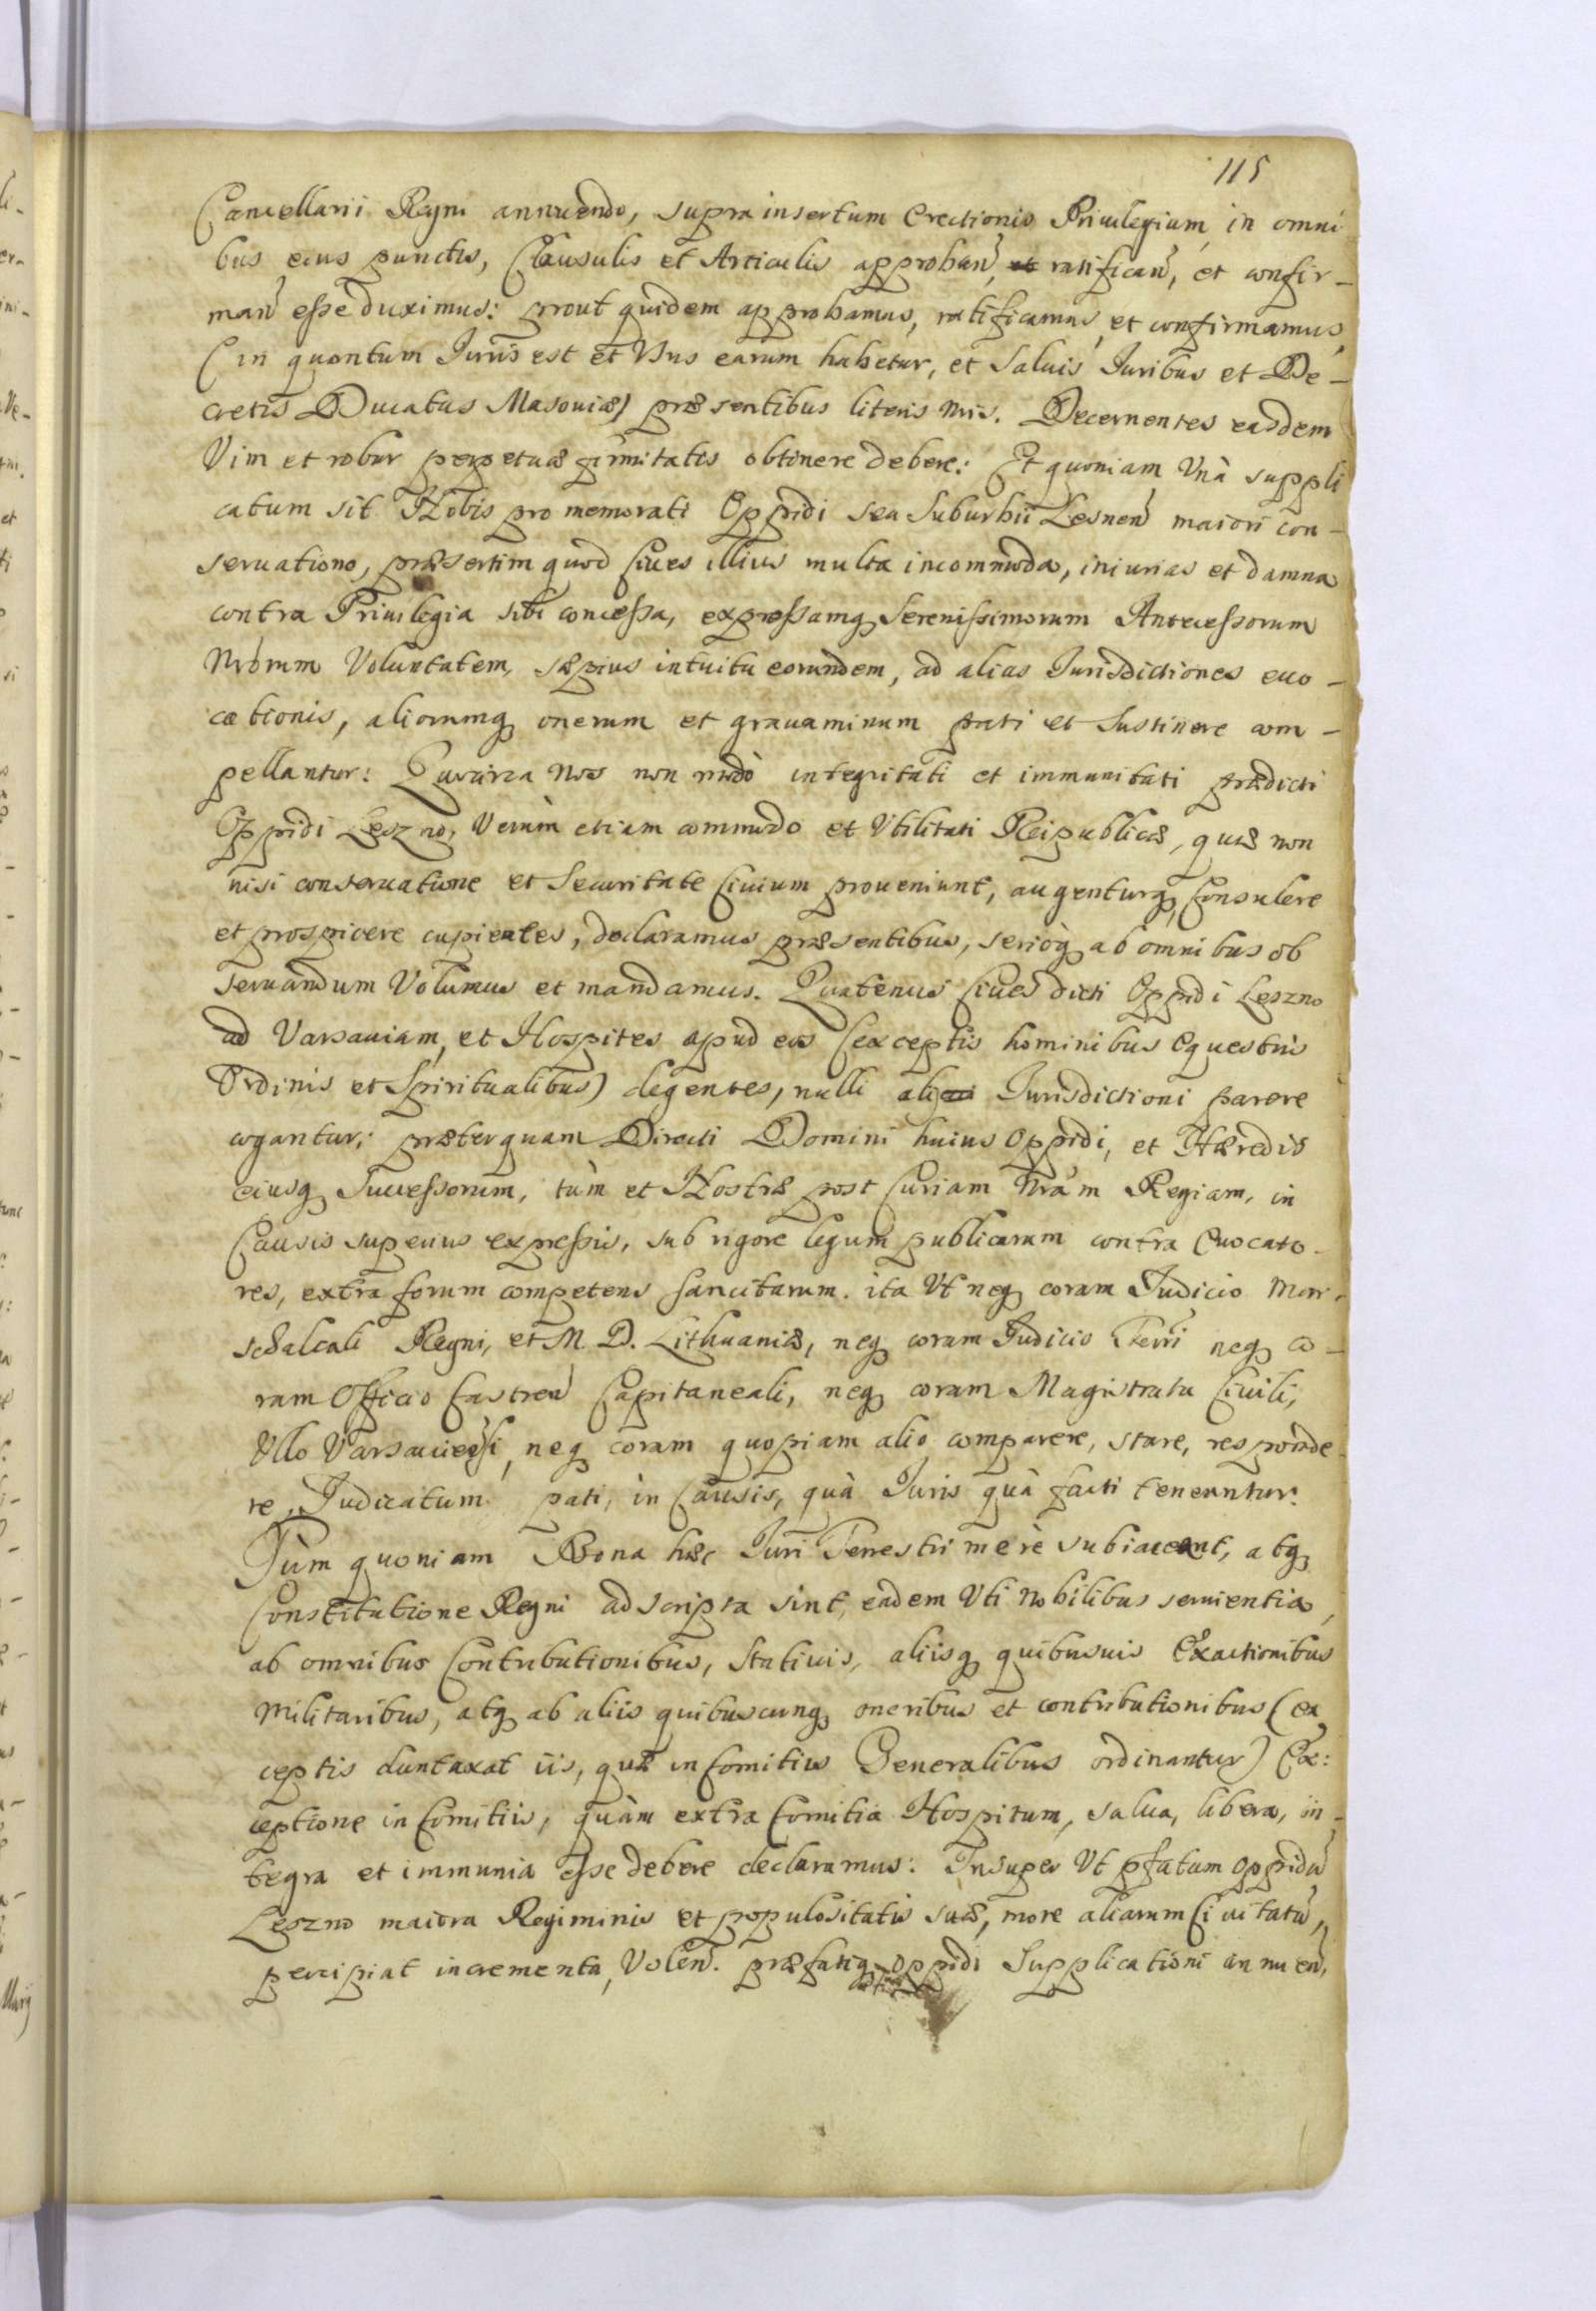 115
Cancellarii Regni annuendo, supra insertum Erectionis Privilegium, in omni
bus eius punctis, Clausulis et Articulis approban̄, ratifican̄, et confir-
man̄ eſse duximus: prout quidem approbamus, ratificamus, et confirmamus,
(in quantum Iuris est et Usus earum habetur, et Saluis Iuribus et De-
cretis Ducatus Masouiæ) præsentibus literis nris. Decernentes easdem
Vim et robur perpetuæ firmitatis obtinere debere: Et quoniam Unà suppli
catum sit Nobis pro memorati Oppidi seu Suburbii Lesnen̄ maiori con-
seruatione, præsertim quod Ciues illius multa incommoda, iniurias et damna
contra Priuilegia sibi conceſsa, expreſsamq₃ Sereniſsimorum Anteceſsorum
Nrorum Voluntatem, sæpius intuitu eorundem, ad alias Iurisdictiones euo-
cationis, aliorumq₃ onerum et grauaminum pati et Sustinere com-
pellantur: Quocirca Nos non modò integritati et immunitati prædicti
Oppidi Leszno, Verùm etiam commodo et Utilitati Reipublicæ, quæ non
nisi conseruatione et Securitate Ciuium proueniunt, augenturq₃, Consulere
et prospicere cupientes, declaramus præsentibus, serioq₃ ab omnibus ob
seruandum Volumus et mandamus. Quatenus Ciues dicti Oppidi Leszno
ad Varsauiam, et Hospites apud eos (exceptis hominibus Equestris
Ordinis et Spiritualibus) degentes, nulli alii Iurisdictioni parere
cogantur; præterquam Directi Domini huius Oppidi, et Hæredis
eiusq₃ Succeſsorum, tùm et Nostræ post Curiam Nram Regiam, in
Causis superius expreſsis, sub rigore legum publicarum contra Euocato-
res, extra forum competens sancitarum. ita Ut neq₃ coram Iudicio Mar-
schalcali Regni, et M. D. Lithuaniæ, neq₃ coram Iudicio Terri neq₃ co-
ram Officio Castren̄ Capitaneali, neq₃ coram Magistratu Ciuili,
Ullo Varsauiensi, neq₃ coram quopiam alio comparere, stare, responde
re, Iudicatum pati, in Causis, quà Iuris quà facti teneantur.
Tùm quoniam Bona hæc Iuri Terrestri merè subiaceant, atq₃
Constitutione Regni adscripta sint, eadem Uti Nobilibus seruientia,
ab omnibus Contributionibus, Statiuis, aliisq₃ quibusuis Exactionibus
Militaribus, atq₃ ab aliis quibuscunq₃ oneribus et contributionibus (ex
ceptis duntaxat iis, quæ in Comitiis Generalibus ordinantur) Ex:
ceptione in Comitiis, quàm extra Comitia Hospitum, salua, libera, in-
tegra et immunia eſse debere declaramus: Insuper Ut pfatum Oppidū
Leszno maiora Regiminis et populositatis suæ, more aliarum Ciuitatū,
percipiat incrementa, Volen̄. præfatiq₃ Oppidi Supplicationi annuen̄,